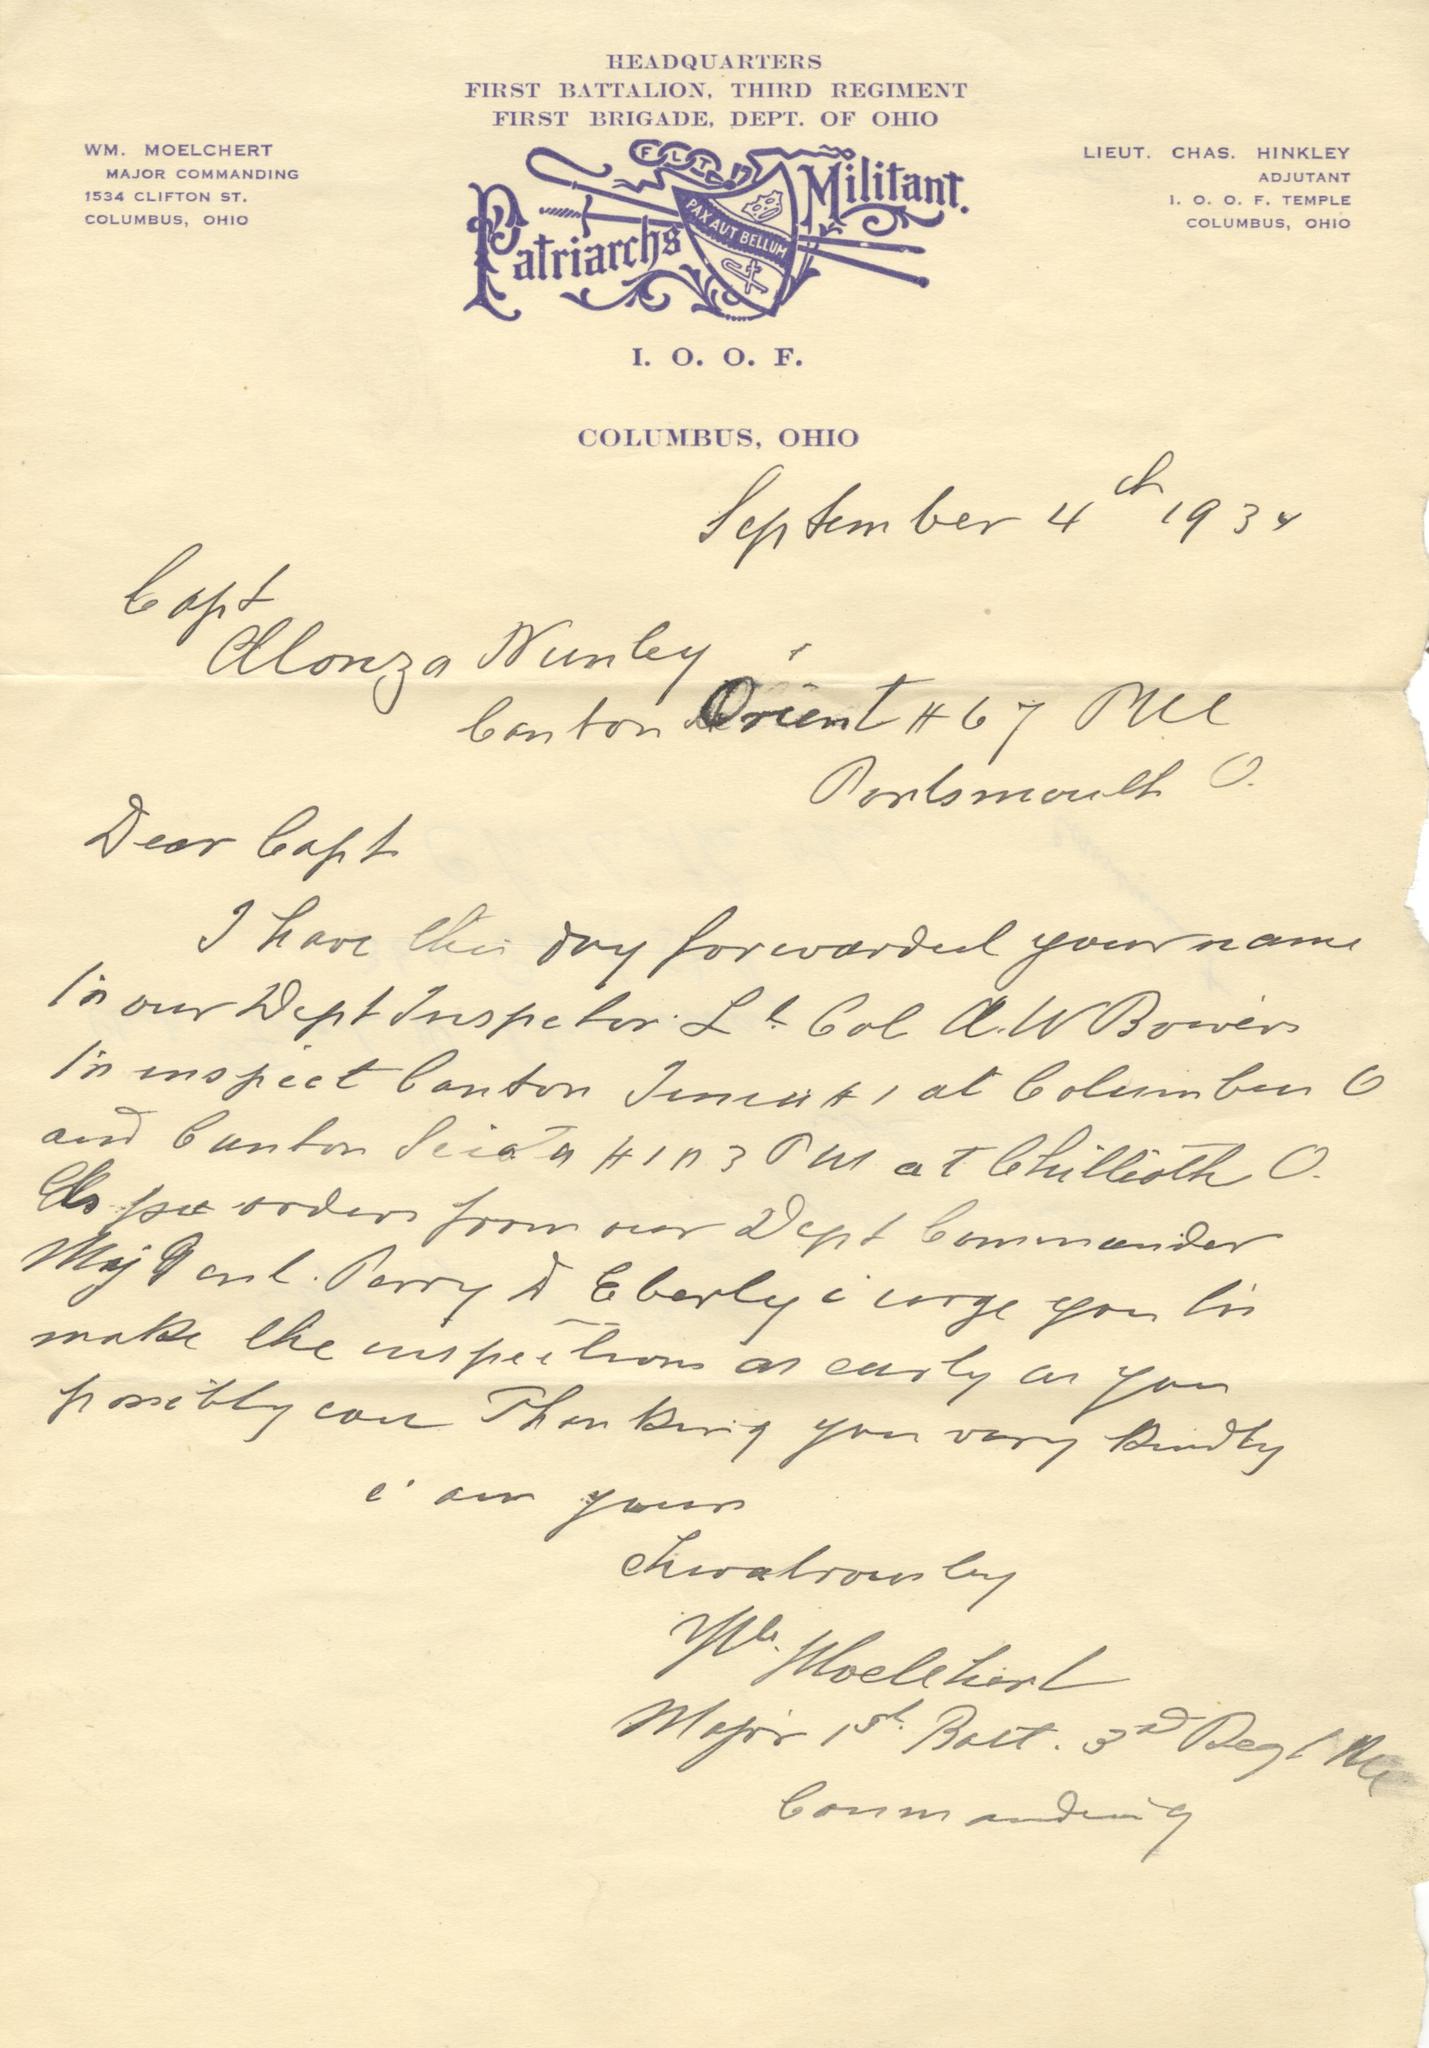 HEADQUARTERS
FIRST BATTALION, THIRD REGIMENT
FIRST BRIGADE, DEPT. OF OHIO
WM. MOELCHERT
MAJOR COMMANDING
1534 CLIFTON ST.
COLUMBUS, OHIO
LIEUT. CHAS. HINKLEY
ADJUTANT
I. O. O. F. TEMPLE
COLUMBUS, OHIO
F L T
Patriarchs Militant.
PAX AUT BELLUM
I. O. O. F.
COLUMBUS, OHIO
September 4th 1934
Capt
Alonza Nunley
Canton Orient # 67 PM
Portsmouth O.
Dear Capt
I have this day forwarded your name
to our Dept Inspector Lt. Col A. W Bowers
to inspect Canton # 1 at Columbus O
and Canton Sciota # 103 PM at Chillioth O.
As per orders from our Dept Commander
Maj Genl. Perry D Eberly i urge you to
make the inspections as early as you
possibly can Thanking you very kindly
i am yours
Chivalrously
Wm. Moelchert
Major 1st. Batt. 3rd Regt PM
Commanding